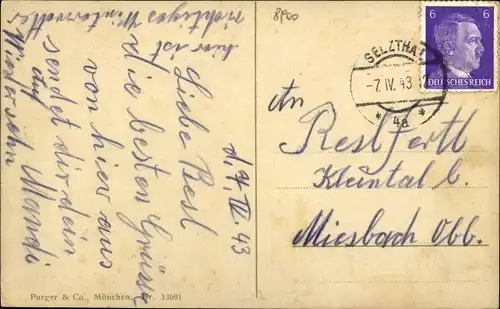 8900
hier ist
richtiges Winterwetter
d. 7. IV. 43
Liebe Resl
die besten Grüsse
von hier aus
sendet dir dein
Mandi
auf
Wiedersehn
Purger & Co., München, Nr. 13691
6 6
DEUTSCHES REICH
SELZTHAL
-7.IV.43
* 4a *
An
Resl Fertl
Kleintal b.
Miesbach Obb.